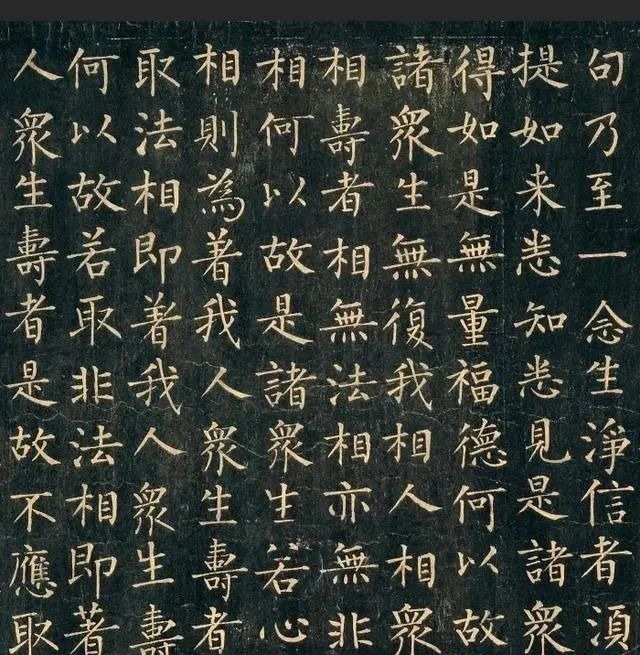 句乃至一念生淨信者須
提如来悉知悉見是諸衆
得如是無量福德何以故
諸衆生無復我相人相衆
相壽者相無法相亦無非
相何以故是諸衆生若心
相則為著我人衆生壽者
取法相即著我人衆生壽
何以故若取非法相即著
人衆生壽者是故不應取